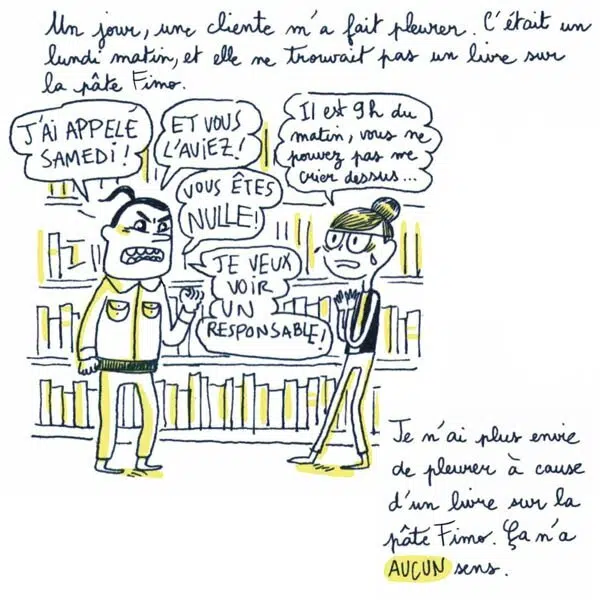 Un jour, une cliente m'a fait pleurer. C'était un
lundi matin, et elle ne trouvait pas un livre sur
la pâte Fimo.
J'AI APPELÉ
SAMEDI !
ET VOUS
L'AVIEZ !
VOUS ÊTES
NULLE !
JE VEUX
VOIR
UN
RESPONSABLE !
Il est 9h du
matin, vous ne
pouvez pas me
crier dessus...
Je n'ai plus envie
de pleurer à cause
d'un livre sur la
pâte Fimo. Ça n'a
AUCUN sens.